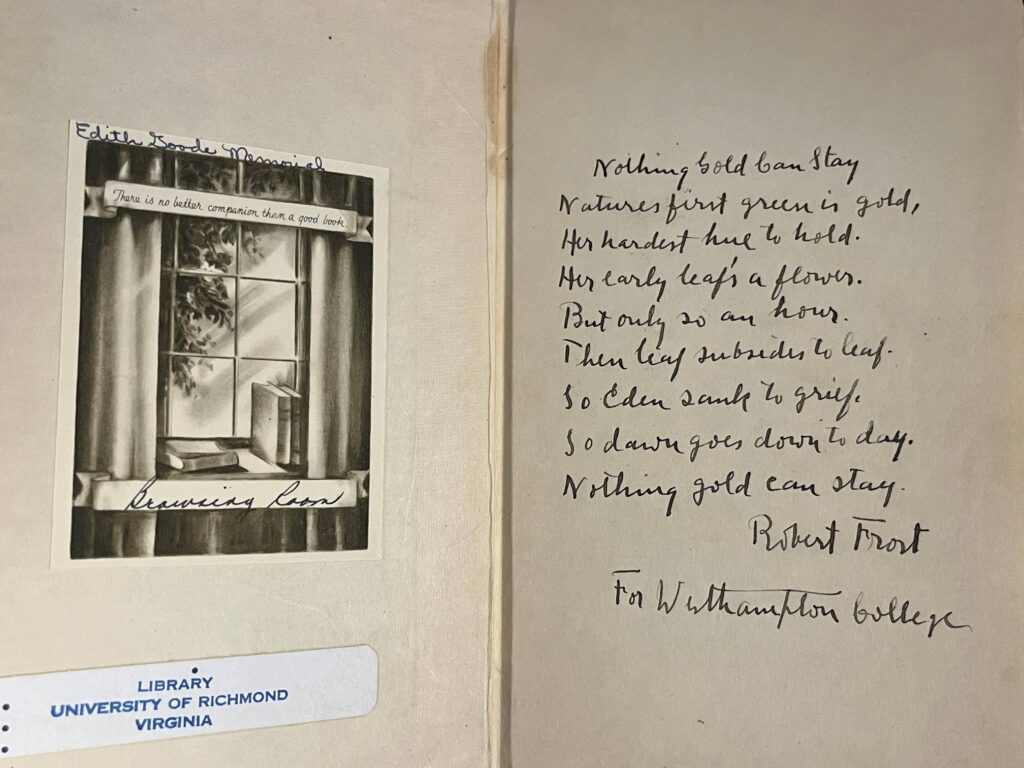 Edith Goode Memorial
There is no better companion than a good book.
Browsing Room
LIBRARY
UNIVERSITY OF RICHMOND
VIRGINIA
Nothing Gold Can Stay
Natures first green is gold,
Her hardest hue to hold.
Her early leaf's a flower.
But only so an hour.
Then leaf subsides to leaf.
So Eden sank to grief.
So dawn goes down to day.
Nothing gold can stay.
Robert Frost
For Westhampton College